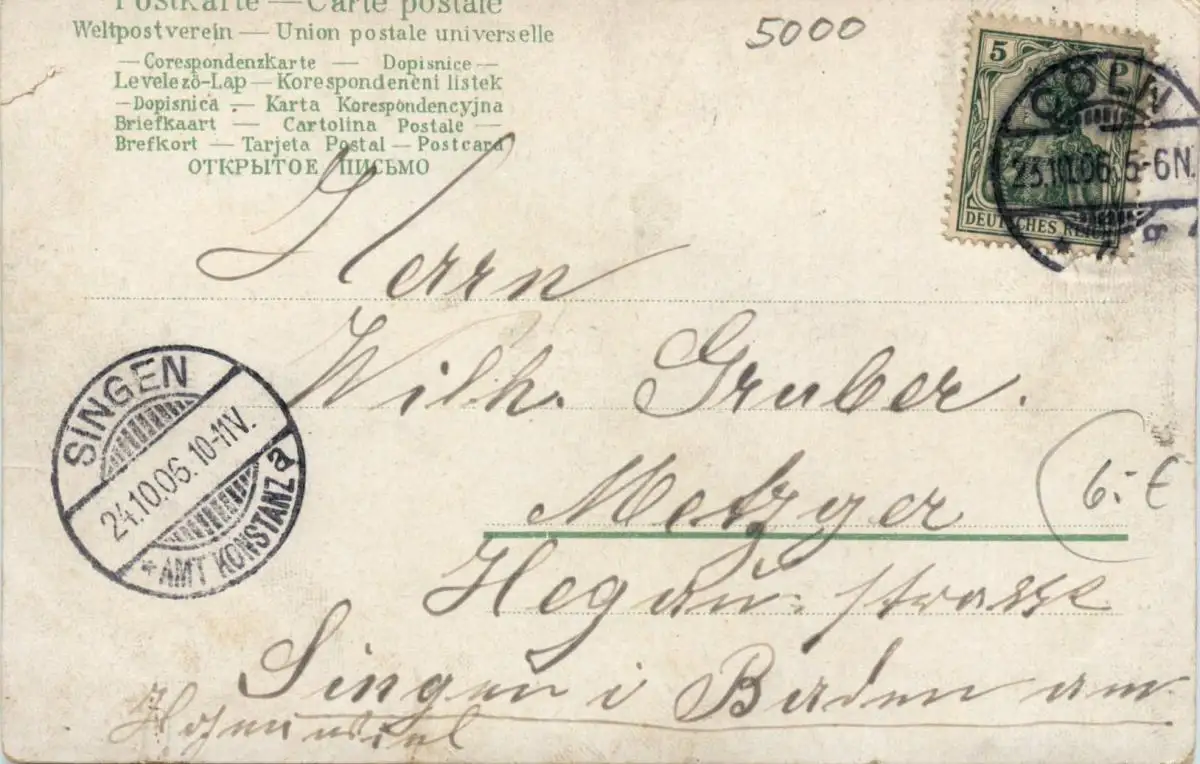 Postkarte — Carte postale
Weltpostverein — Union postale universelle
— Corespondenzkarte — Dopisnice —
Levelezö-Lap — Korespondenčni listek
— Dopisnica — Karta Korespondencyjna
Briefkaart — Cartolina Postale —
Brefkort — Tarjeta Postal — Postcard
ОТКРЫТОЕ ПИСЬМО
5000
5
DEUTSCHES REICH
CÖLN
23.10.06. 5-6N.
Herrn
Wilh. Gruber.
Metzger
Hegau. strasse
Singen i Baden am
Hohentwiel
6.- €
SINGEN
24.10.06. 10-11V.
* AMT KONSTANZ a